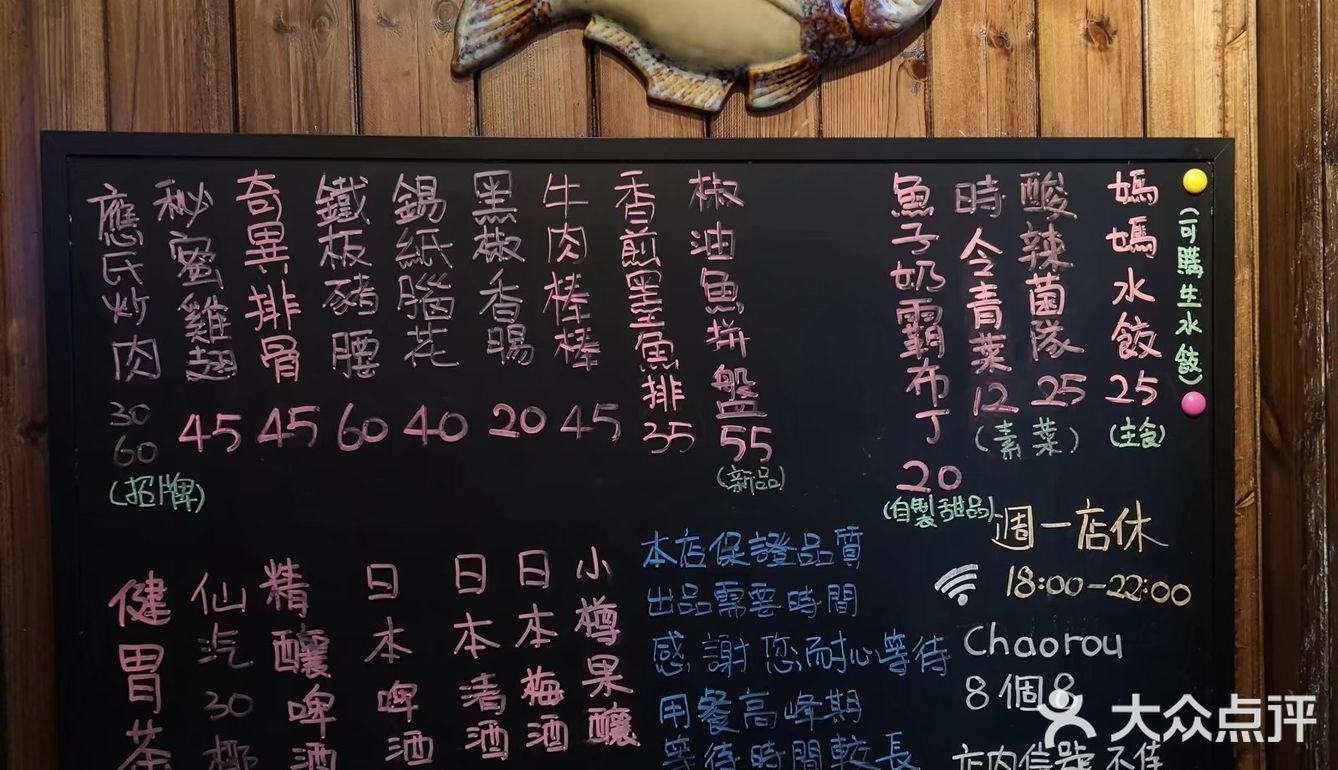 應氏炒肉 30 60 (招牌)
秘蜜雞翅 45
奇異排骨 45
鐵板豬腰 60
錫紙腦花 40
黑椒香腸 20
牛肉棒棒 45
香煎墨魚排 35
椒油魚拼盤 55 (新品)
魚子奶霸布丁 20 (自製甜品)
時令青菜 12
酸辣菌隊 25
(素菜)
媽媽水餃 25 (主食)
(可購生水餃)
健胃茶
仙汽 30
精釀啤酒
日本啤酒
日本清酒
日本梅酒
小樽果釀
本店保證品質
出品需要時間
感謝您而心等待
用餐高峰期
等待時間較長
週一店休
18:00-22:00
Chaorou
8個8
店内信號不佳
大众点评